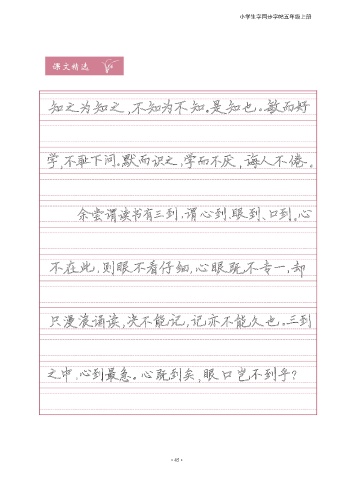 小学生字同步字帖五年级上册
课文精选
知之为知之,不知为不知。是知也。敏而好
学,不耻下问。默而识之,学而不厌,诲人不倦。
余尝谓读书有三到,谓心到、眼到、口到。心
不在此,则眼不看仔细,心眼既不专一,却
只漫浪诵读,决不能记,记亦不能久也。三到
之中,心到最急。心既到矣,眼口岂不到乎?
• 45 •